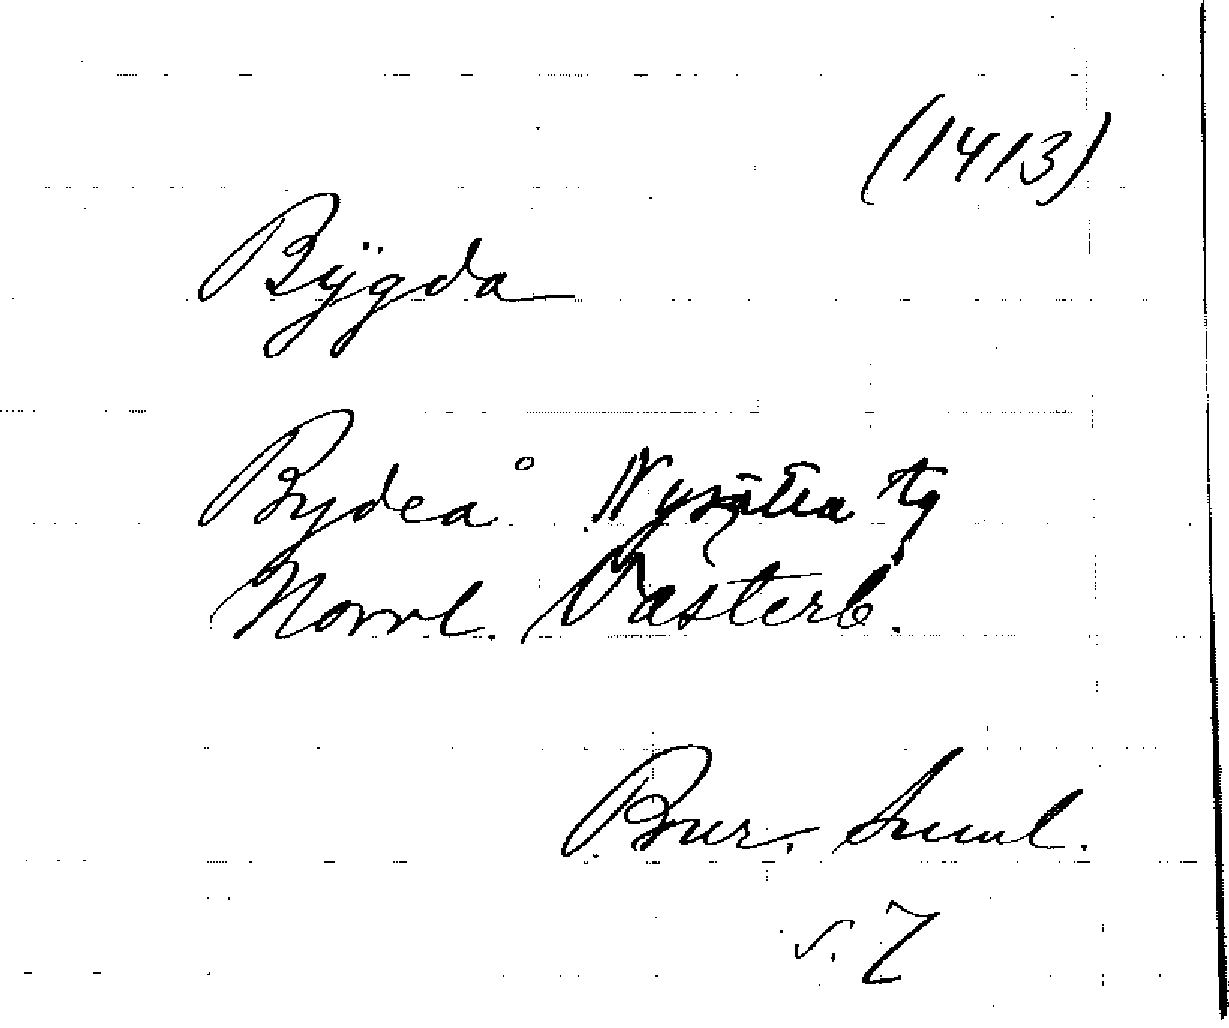 (1413)
Bÿgda
Bydeå Nysätra tg
Norrl. Västerb.
Bur. Suml.
s. 7